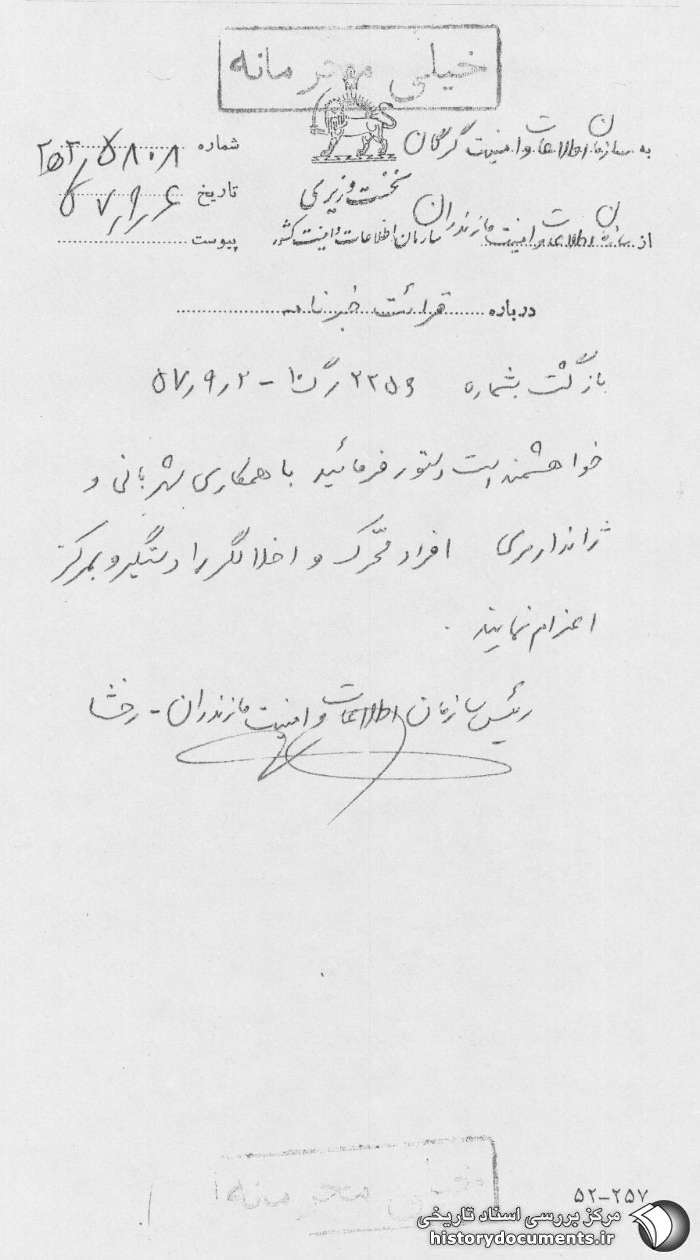 خیلی محرمانه
به سازمان اطلاعات و امنیت گرگان
شماره ۵۸۰۸
تاریخ ۵۷/۹/۶
نخست وزیری
از سازمان اطلاعات و امنیت مازندران
سازمان اطلاعات و امنیت کشور
پیوست
درباره قرائت خبرنامه
بازگشت بشماره ۲۲۵۶ / ۵۷/۹/۲
خواهشمند است دستور فرمائید با همکاری شهربانی و
ژاندارمری افراد محرک و اخلالگر را دستگیر و بمرکز
اعزام نمایند.
رئیس سازمان اطلاعات و امنیت مازندران - رخشا
خیلی محرمانه
۵۲-۲۵۷
مرکز بررسی اسناد تاریخی
historydocuments.ir